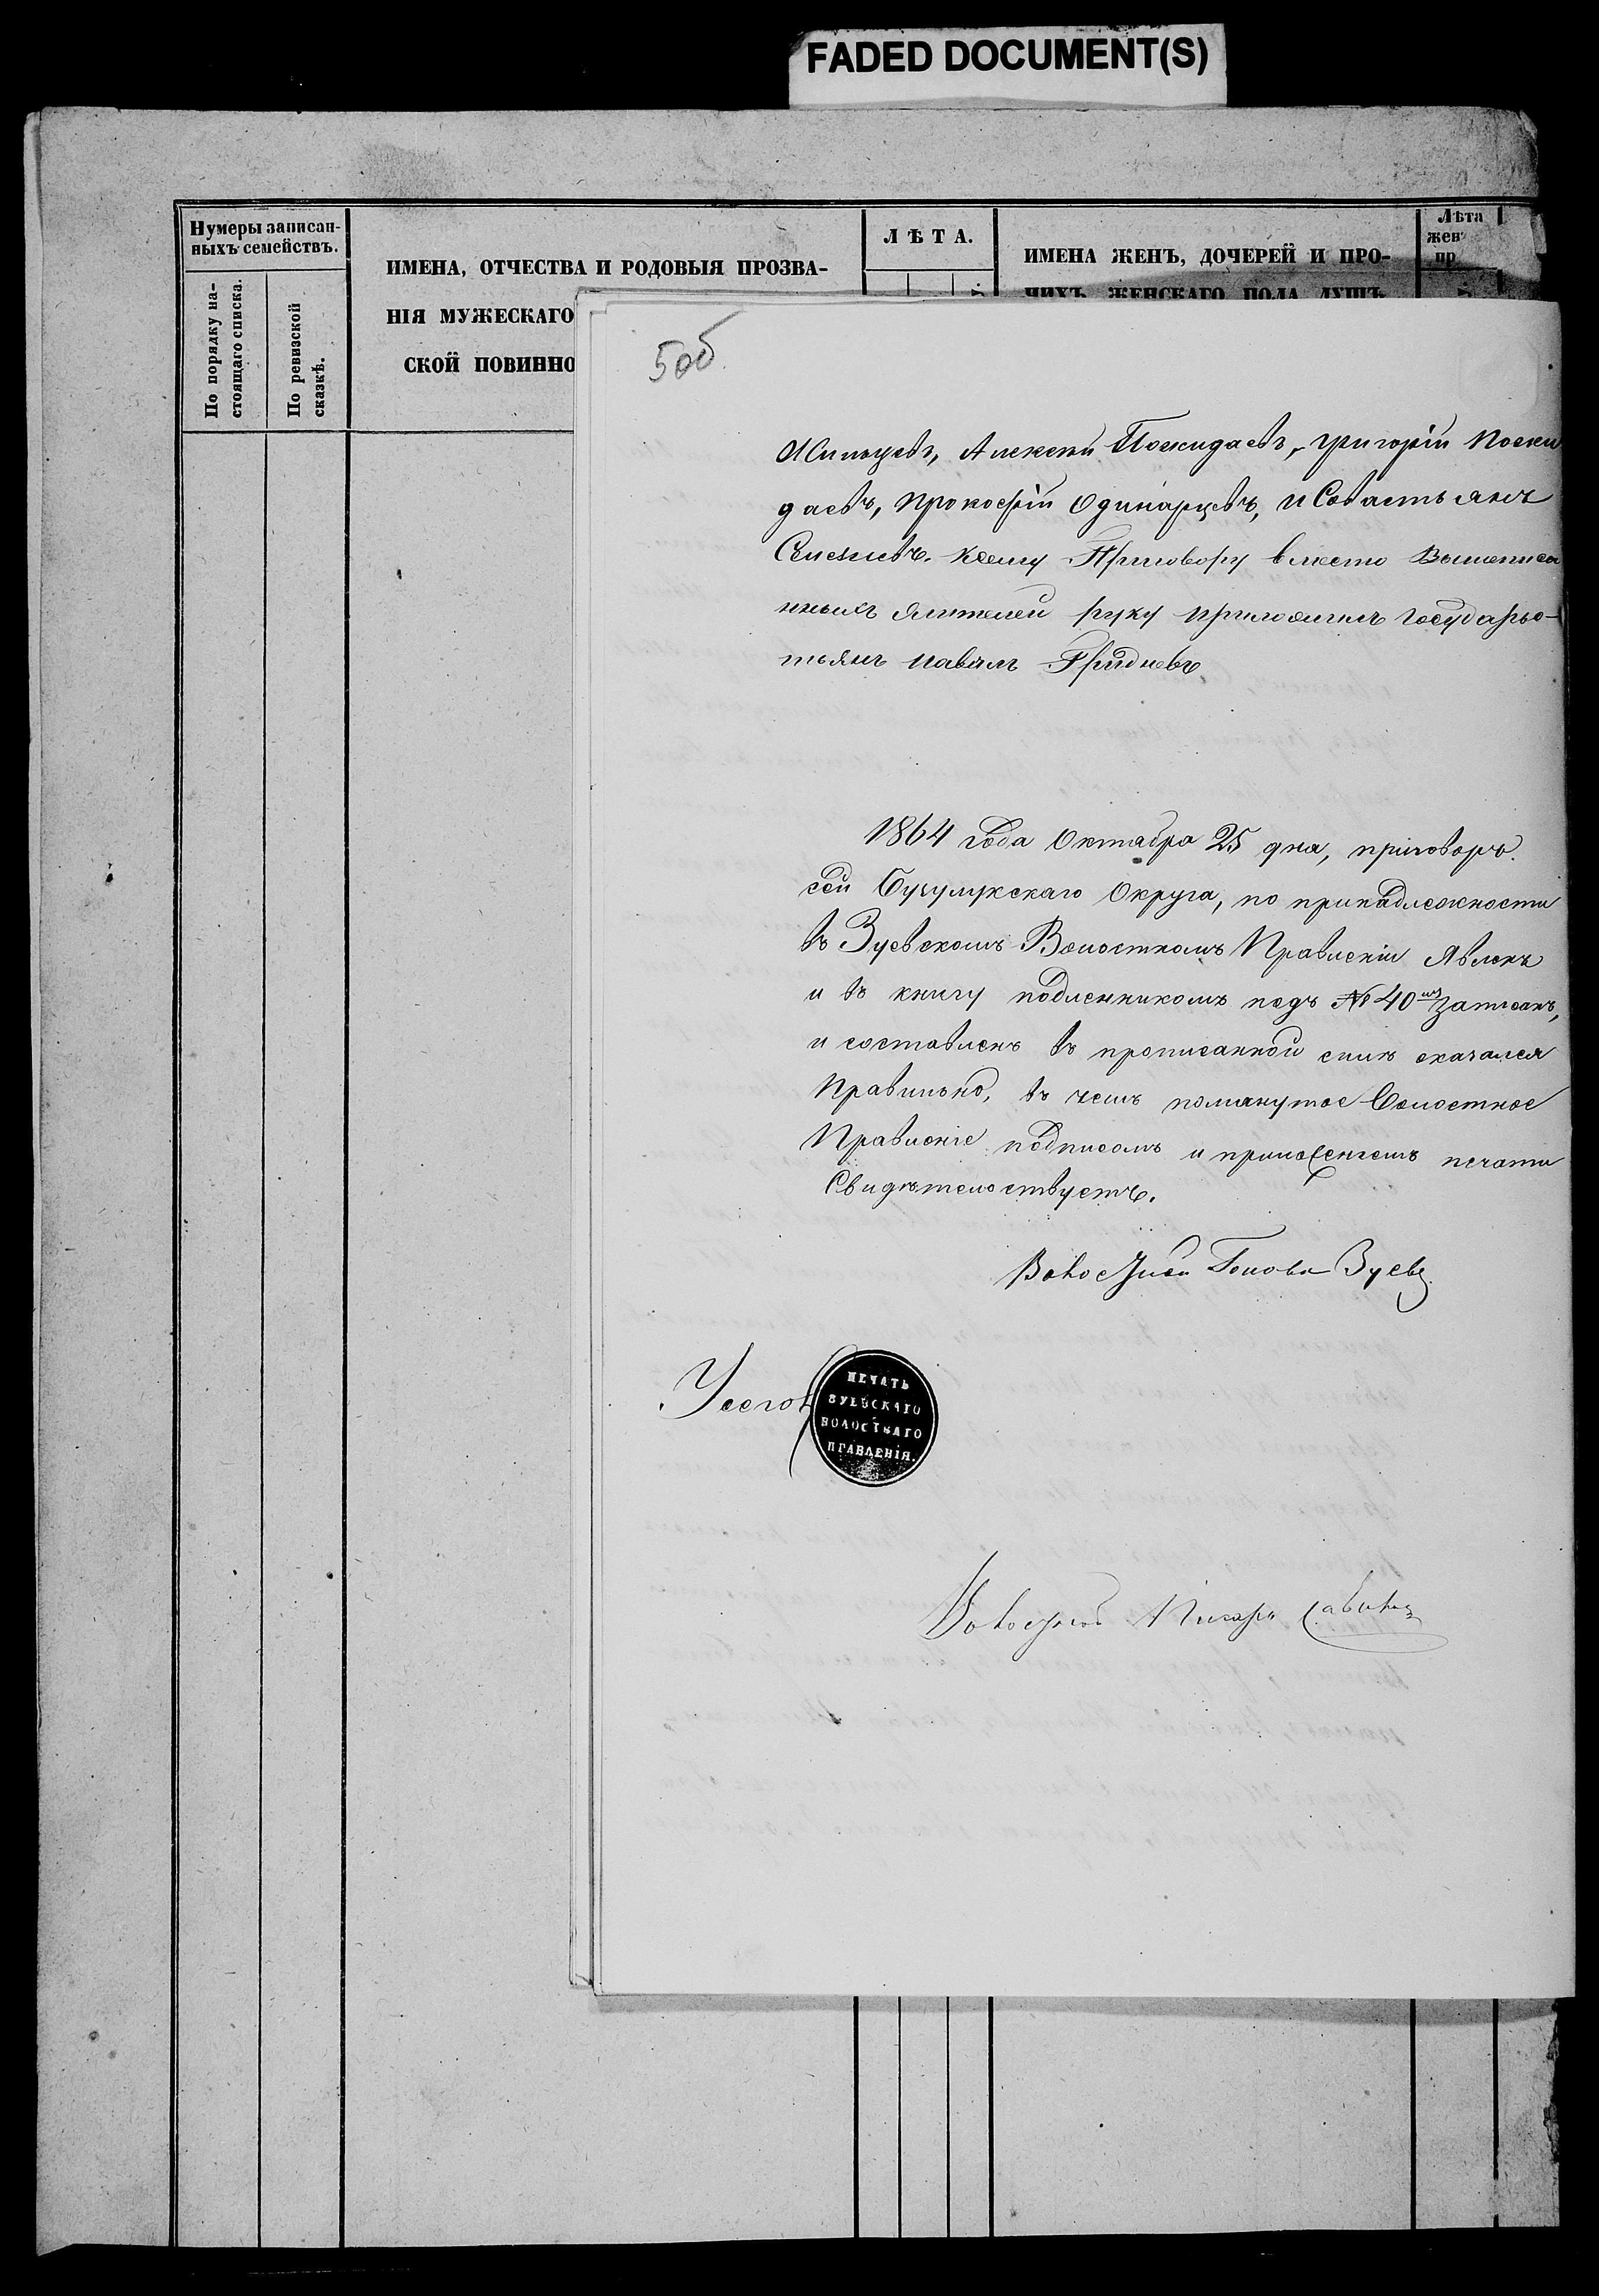 FADED DOCUMENT(S)
Нумеры записан-
ныхъ семействъ.
По порядку на-
стоящаго списка.
По ревизской
сказкѣ.
ИМЕНА, ОТЧЕСТВА И РОДОВЫЯ ПРОЗВА-
НІЯ МУЖЕСКАГО
СКОЙ ПОВИННО
ЛѢТА.
ИМЕНА ЖЕНЪ, ДОЧЕРЕЙ И ПРО-
ЧИХЪ ЖЕНСКАГО ПОЛА ДУШЪ
Лѣта
жен
пр
5об
Жильцовъ, Алексей Поскидаевъ, Григорій Поски
даевъ, Прокофій Одинарцевъ, и Совастьянъ
Селезневъ. Ксему Приговору вместо Вышеписа
нныхъ жителей руку приложилъ Государс-
тьянъ Павелъ Гридневъ
1864 года Октабра 25 дня, приговоръ
сей Бузулукскаго Округа, по принадлежности
въ Зуевскомъ Волостномъ Правленіи Явленъ
и въ книгу подленникомъ подъ № 40мъ записанъ,
и составленъ въ прописанной силѣ оказался
Правильно, въ чемъ помянутое Волостное
Правленіе подписомъ и приложеніемъ печати
Свидѣтельствуетъ.
Волостной Голова Зуевъ
ПЕЧАТЬ
ЗУЕВСКАГО
ВОЛОСТНАГО
ПРАВЛЕНІЯ.
Волостной Писарь